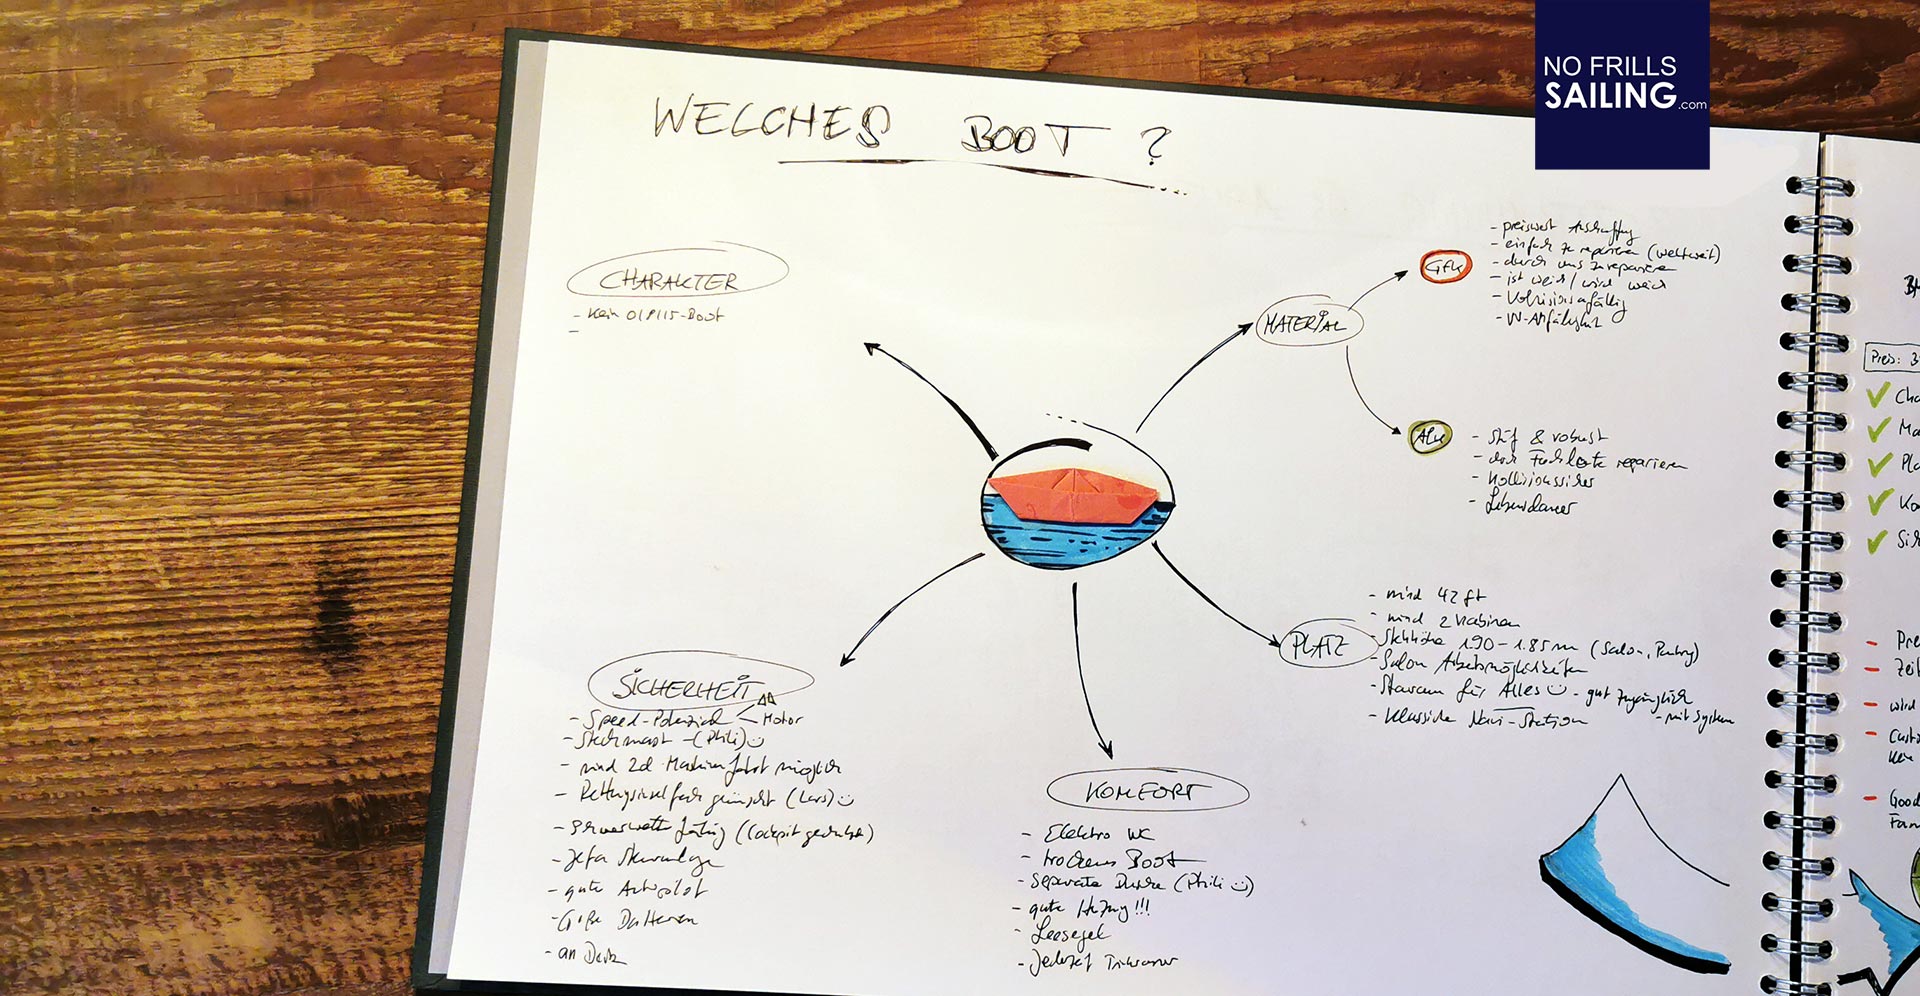 NO FRILLS
SAILING.com
WELCHES BOOT?
CHARAKTER
- Kein 0/8/15-Boot
-
MATERIAL
GFK
- preiswert Anschaffung
- einfach zu reparieren (weltweit)
- durch uns zu reparieren
- ist weich / wird weich
- Kollisionsanfällig
- UV-Anfälligkeit
Alu
- steif & robust
- Fachleute reparieren
- Kollisionssicher
- Lebensdauer
PLATZ
- mind 42 ft
- mind 2 Kabinen
- Stehhöhe 1.90 - 1.85 m (Salon, Pantry)
- Salon Arbeitsmöglichkeiten
- Stauraum für Alles - gut zugänglich
- mit System
- Klassische Navi-Station
SICHERHEIT
- Speed-Potenzial
Motor
- Steckmast - (Phili)
- mind 2d Maschinenfahrt möglich
- Rettungsinselfach gewünscht (Lars)
- Schwerwetter fähig (Cockpit geschützt)
- Jefa Steueranlage
- gute Autopilot
- Große Batterien
- an Deck
KOMFORT
- Elektro WC
- trockenes Boot
- Separate Dusche (Phili)
- gute Heizung!!!
- Leesegel
- Jederzeit Trinkwasser
Preis: 3
Cha
Ma
Pla
Ko
Sich
- Pre
- Zeit
- wird
- Custo
- Good
Fam